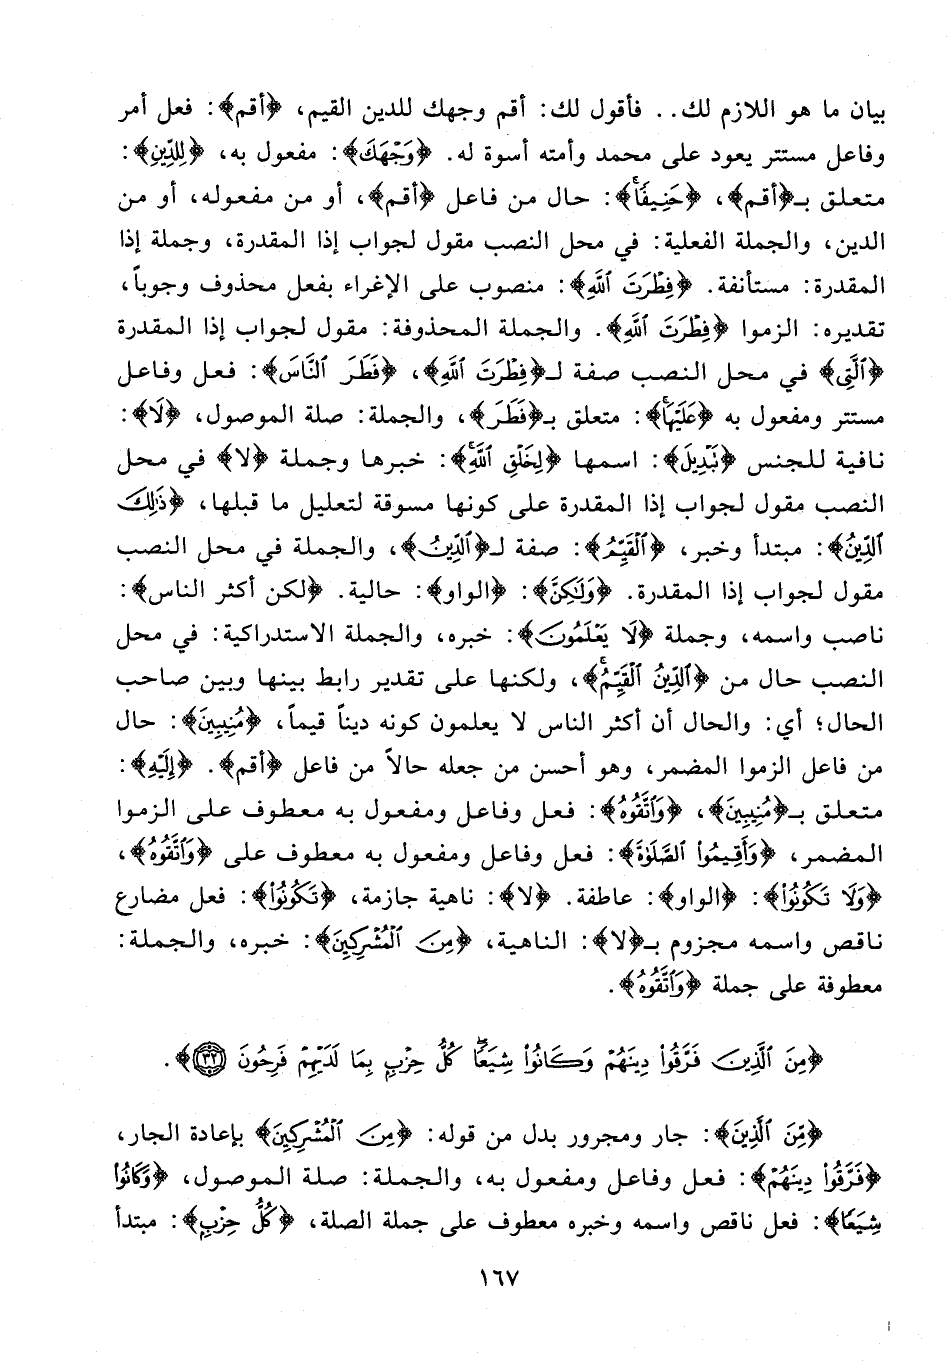 بيان ما هو اللازم لك.. فأقول لك: أقم وجهك للدين القيم، ﴿أقم﴾: فعل أمر
وفاعل مستتر يعود على محمد وأمته أسوة له. ﴿وَجْهَكَ﴾: مفعول به، ﴿لِلدِّينِ﴾:
متعلق بـ﴿أقم﴾، ﴿حَنِيفًا﴾: حال من فاعل ﴿أقم﴾، أو من مفعوله، أو من
الدين، والجملة الفعلية: في محل النصب مقول لجواب إذا المقدرة، وجملة إذا
المقدرة: مستأنفة. ﴿فِطْرَتَ اللَّهِ﴾: منصوب على الإغراء بفعل محذوف وجوباً،
تقديره: الزموا ﴿فِطْرَتَ اللَّهِ﴾. والجملة المحذوفة: مقول لجواب إذا المقدرة
﴿الَّتِي﴾ في محل النصب صفة لـ﴿فِطْرَتَ اللَّهِ﴾، ﴿فَطَرَ النَّاسَ﴾: فعل وفاعل
مستتر ومفعول به ﴿عَلَيْهَا﴾: متعلق بـ﴿فَطَرَ﴾، والجملة: صلة الموصول، ﴿لَا﴾:
نافية للجنس ﴿تَبْدِيلَ﴾: اسمها ﴿لِخَلْقِ اللَّهِ﴾: خبرها وجملة ﴿لا﴾ في محل
النصب مقول لجواب إذا المقدرة على كونها مسوقة لتعليل ما قبلها، ﴿ذَٰلِكَ
الدِّينُ﴾: مبتدأ وخبر، ﴿الْقَيِّمُ﴾: صفة لـ﴿الدِّينُ﴾، والجملة في محل النصب
مقول لجواب إذا المقدرة. ﴿وَلَٰكِنَّ﴾: ﴿الواو﴾: حالية. ﴿لكن أكثر الناس﴾:
ناصب واسمه، وجملة ﴿لَا يَعْلَمُونَ﴾: خبره، والجملة الاستدراكية: في محل
النصب حال من ﴿الدِّينُ الْقَيِّمُ﴾، ولكنها على تقدير رابط بينها وبين صاحب
الحال؛ أي: والحال أن أكثر الناس لا يعلمون كونه ديناً قيماً، ﴿مُنِيبِينَ﴾: حال
من فاعل الزموا المضمر، وهو أحسن من جعله حالاً من فاعل ﴿أقم﴾. ﴿إِلَيْهِ﴾:
متعلق بـ﴿مُنِيبِينَ﴾، ﴿وَاتَّقُوهُ﴾: فعل وفاعل ومفعول به معطوف على الزموا
المضمر، ﴿وَأَقِيمُوا الصَّلَوٰةَ﴾: فعل وفاعل ومفعول به معطوف على ﴿وَاتَّقُوهُ﴾،
﴿وَلَا تَكُونُوا﴾: ﴿الواو﴾: عاطفة. ﴿لا﴾: ناهية جازمة، ﴿تَكُونُوا﴾: فعل مضارع
ناقص واسمه مجزوم بـ﴿لا﴾: الناهية، ﴿مِنَ الْمُشْرِكِينَ﴾: خبره، والجملة:
معطوفة على جملة ﴿وَاتَّقُوهُ﴾.
﴿مِنَ الَّذِينَ فَرَّقُوا دِينَهُمْ وَكَانُوا شِيَعًا ۖ كُلُّ حِزْبٍ بِمَا لَدَيْهِمْ فَرِحُونَ ٣٢﴾.
﴿مِّنَ الَّذِينَ﴾: جار ومجرور بدل من قوله: ﴿مِنَ الْمُشْرِكِينَ﴾ بإعادة الجار،
﴿فَرَّقُوا دِينَهُمْ﴾: فعل وفاعل ومفعول به، والجملة: صلة الموصول، ﴿وَكَانُوا
شِيَعًا﴾: فعل ناقص واسمه وخبره معطوف على جملة الصلة، ﴿كُلُّ حِزْبٍ﴾: مبتدأ
١٦٧